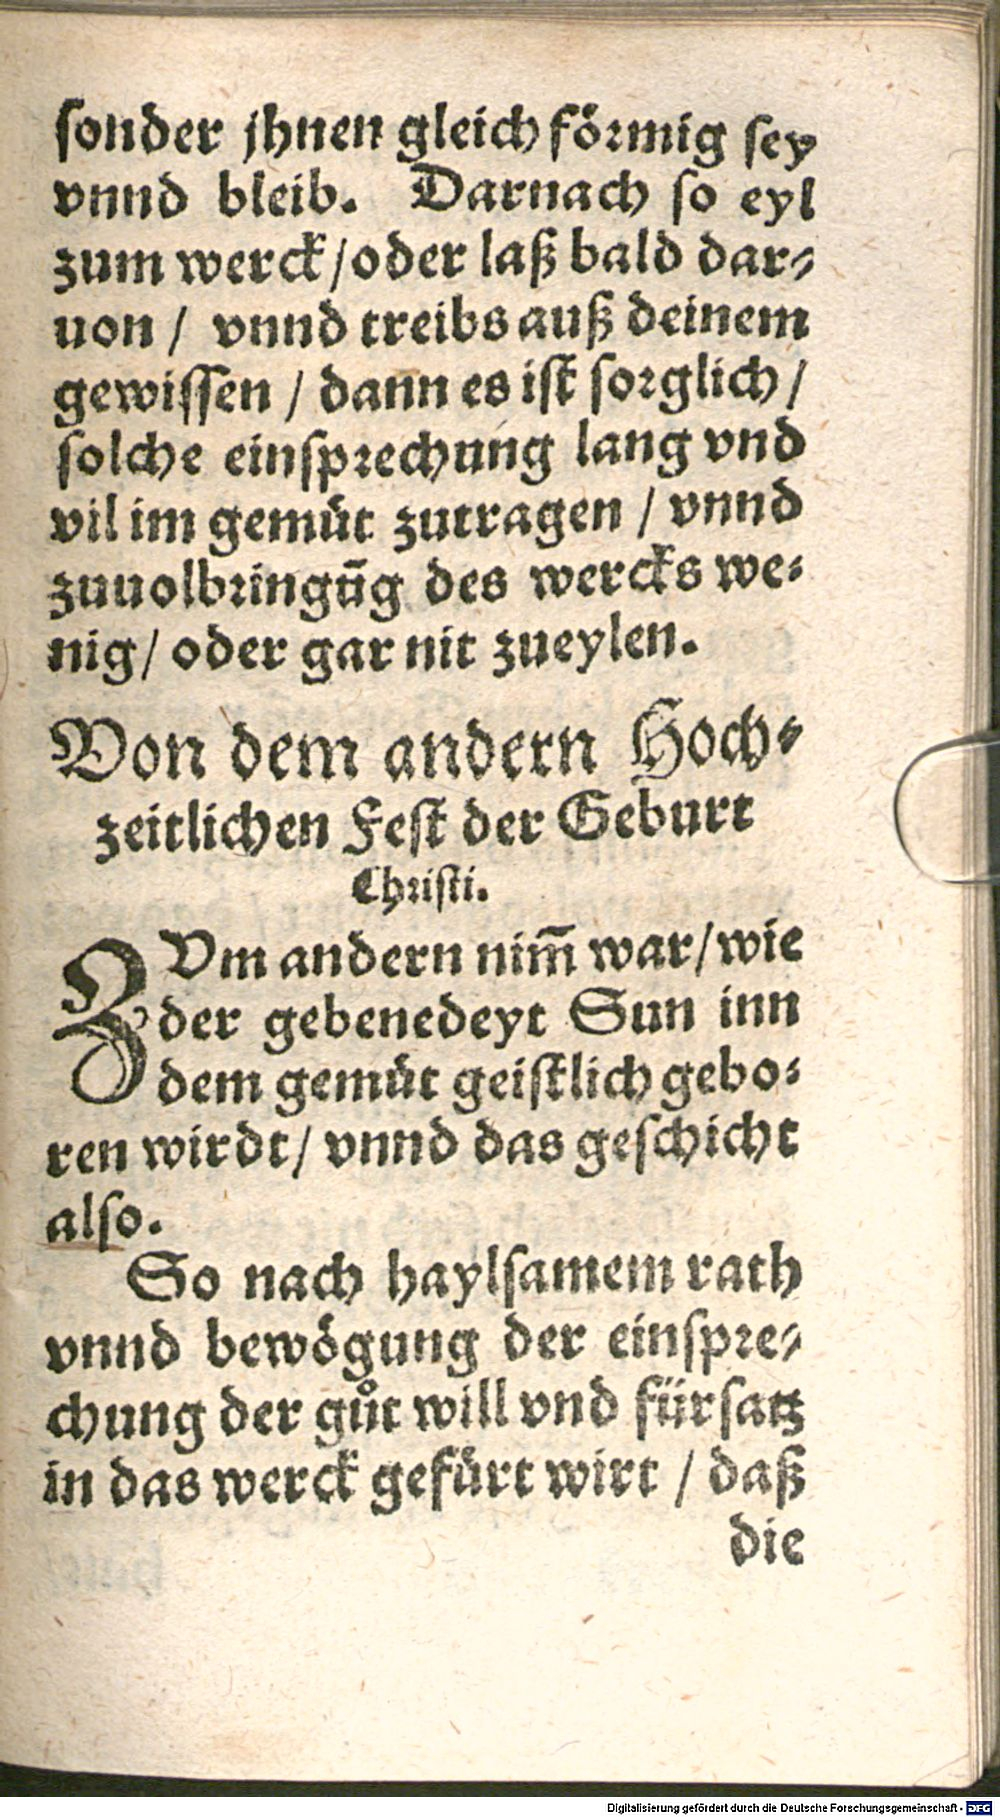 sonder jhnen gleich förmig sey
vnnd bleib. Darnach so eyl
zum werck/oder laß bald dar-
uon / vnnd treibs auß deinem
gewissen / dann es ist sorglich /
solche einsprechung lang vnd
vil im gemüt zutragen / vnnd
zuuolbringūg des wercks we-
nig/ oder gar nit zueylen.
Von dem andern Hoch-
zeitlichen Fest der Geburt
Christi.
ZVm andern nim̄ war/wie
der gebenedeyt Sun inn
dem gemüt geistlich gebo-
ren wirdt/ vnnd das geschicht
also.
So nach haylsamem rath
vnnd bewögung der einspre-
chung der gůt will vnd fürsatz
in das werck gefürt wirt / daß
die
Digitalisierung gefördert durch die Deutsche Forschungsgemeinschaft - DFG